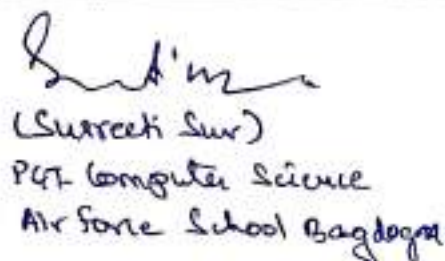 (Surreeti Sur)
PGT Computer Science
Air Force School Bagdogra